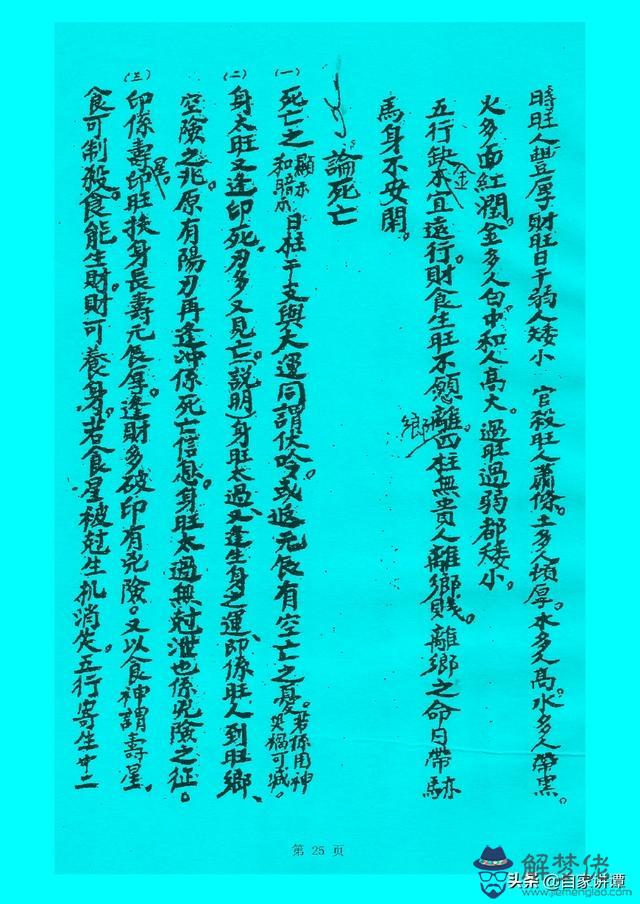 時旺人豐厚財旺日干弱人矮小 官殺旺人蕭條。土多人頓厚。木多人高。水多人帶黑。
火多面紅潤。金多人白。中和人高大。過旺過弱都矮小。
五行缺木金宜遠行。財食生旺不願離鄉。四柱無貴人離鄉賤。離鄉之命日帶馹
馬身不安閑。
論死亡
(一) 死亡之 顯示和暗示 日柱干支與大運同謂伏吟。或返元辰有空亡之憂。若係用神災禍可減。
(二) 身太旺又逢印死。刃多又見亡。(說明)身旺太過、又逢生身之運、印係旺人到旺鄉、
空險之兆。原有陽刃再逢沖係死亡信息。身旺太過無尅泄也係兇險之征。
(三) 印係壽星印旺扶身長壽元辰厚。逢財多破印有兇險。又以食神謂壽星、
食可制殺。食能生財。財可養身。若食星被尅生机消失。五行寄生十二
第 25 页
解梦佬
www.jiemenglao.com
头条 @自家讲谭